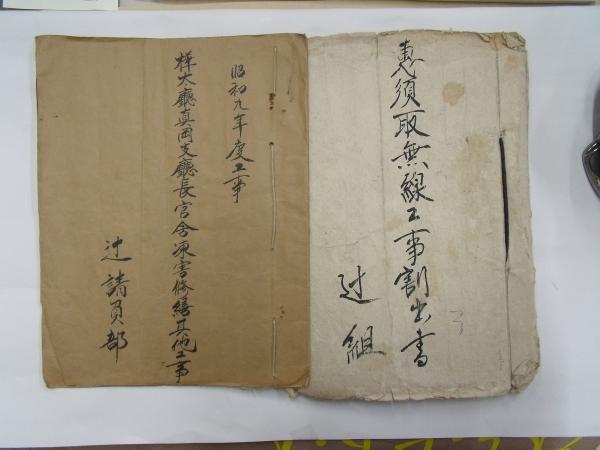 惠須取無線工事割出書
辻組
昭和九年度工事
樺太廳真岡支廳長官舎凍害修繕其他工事
辻請負部